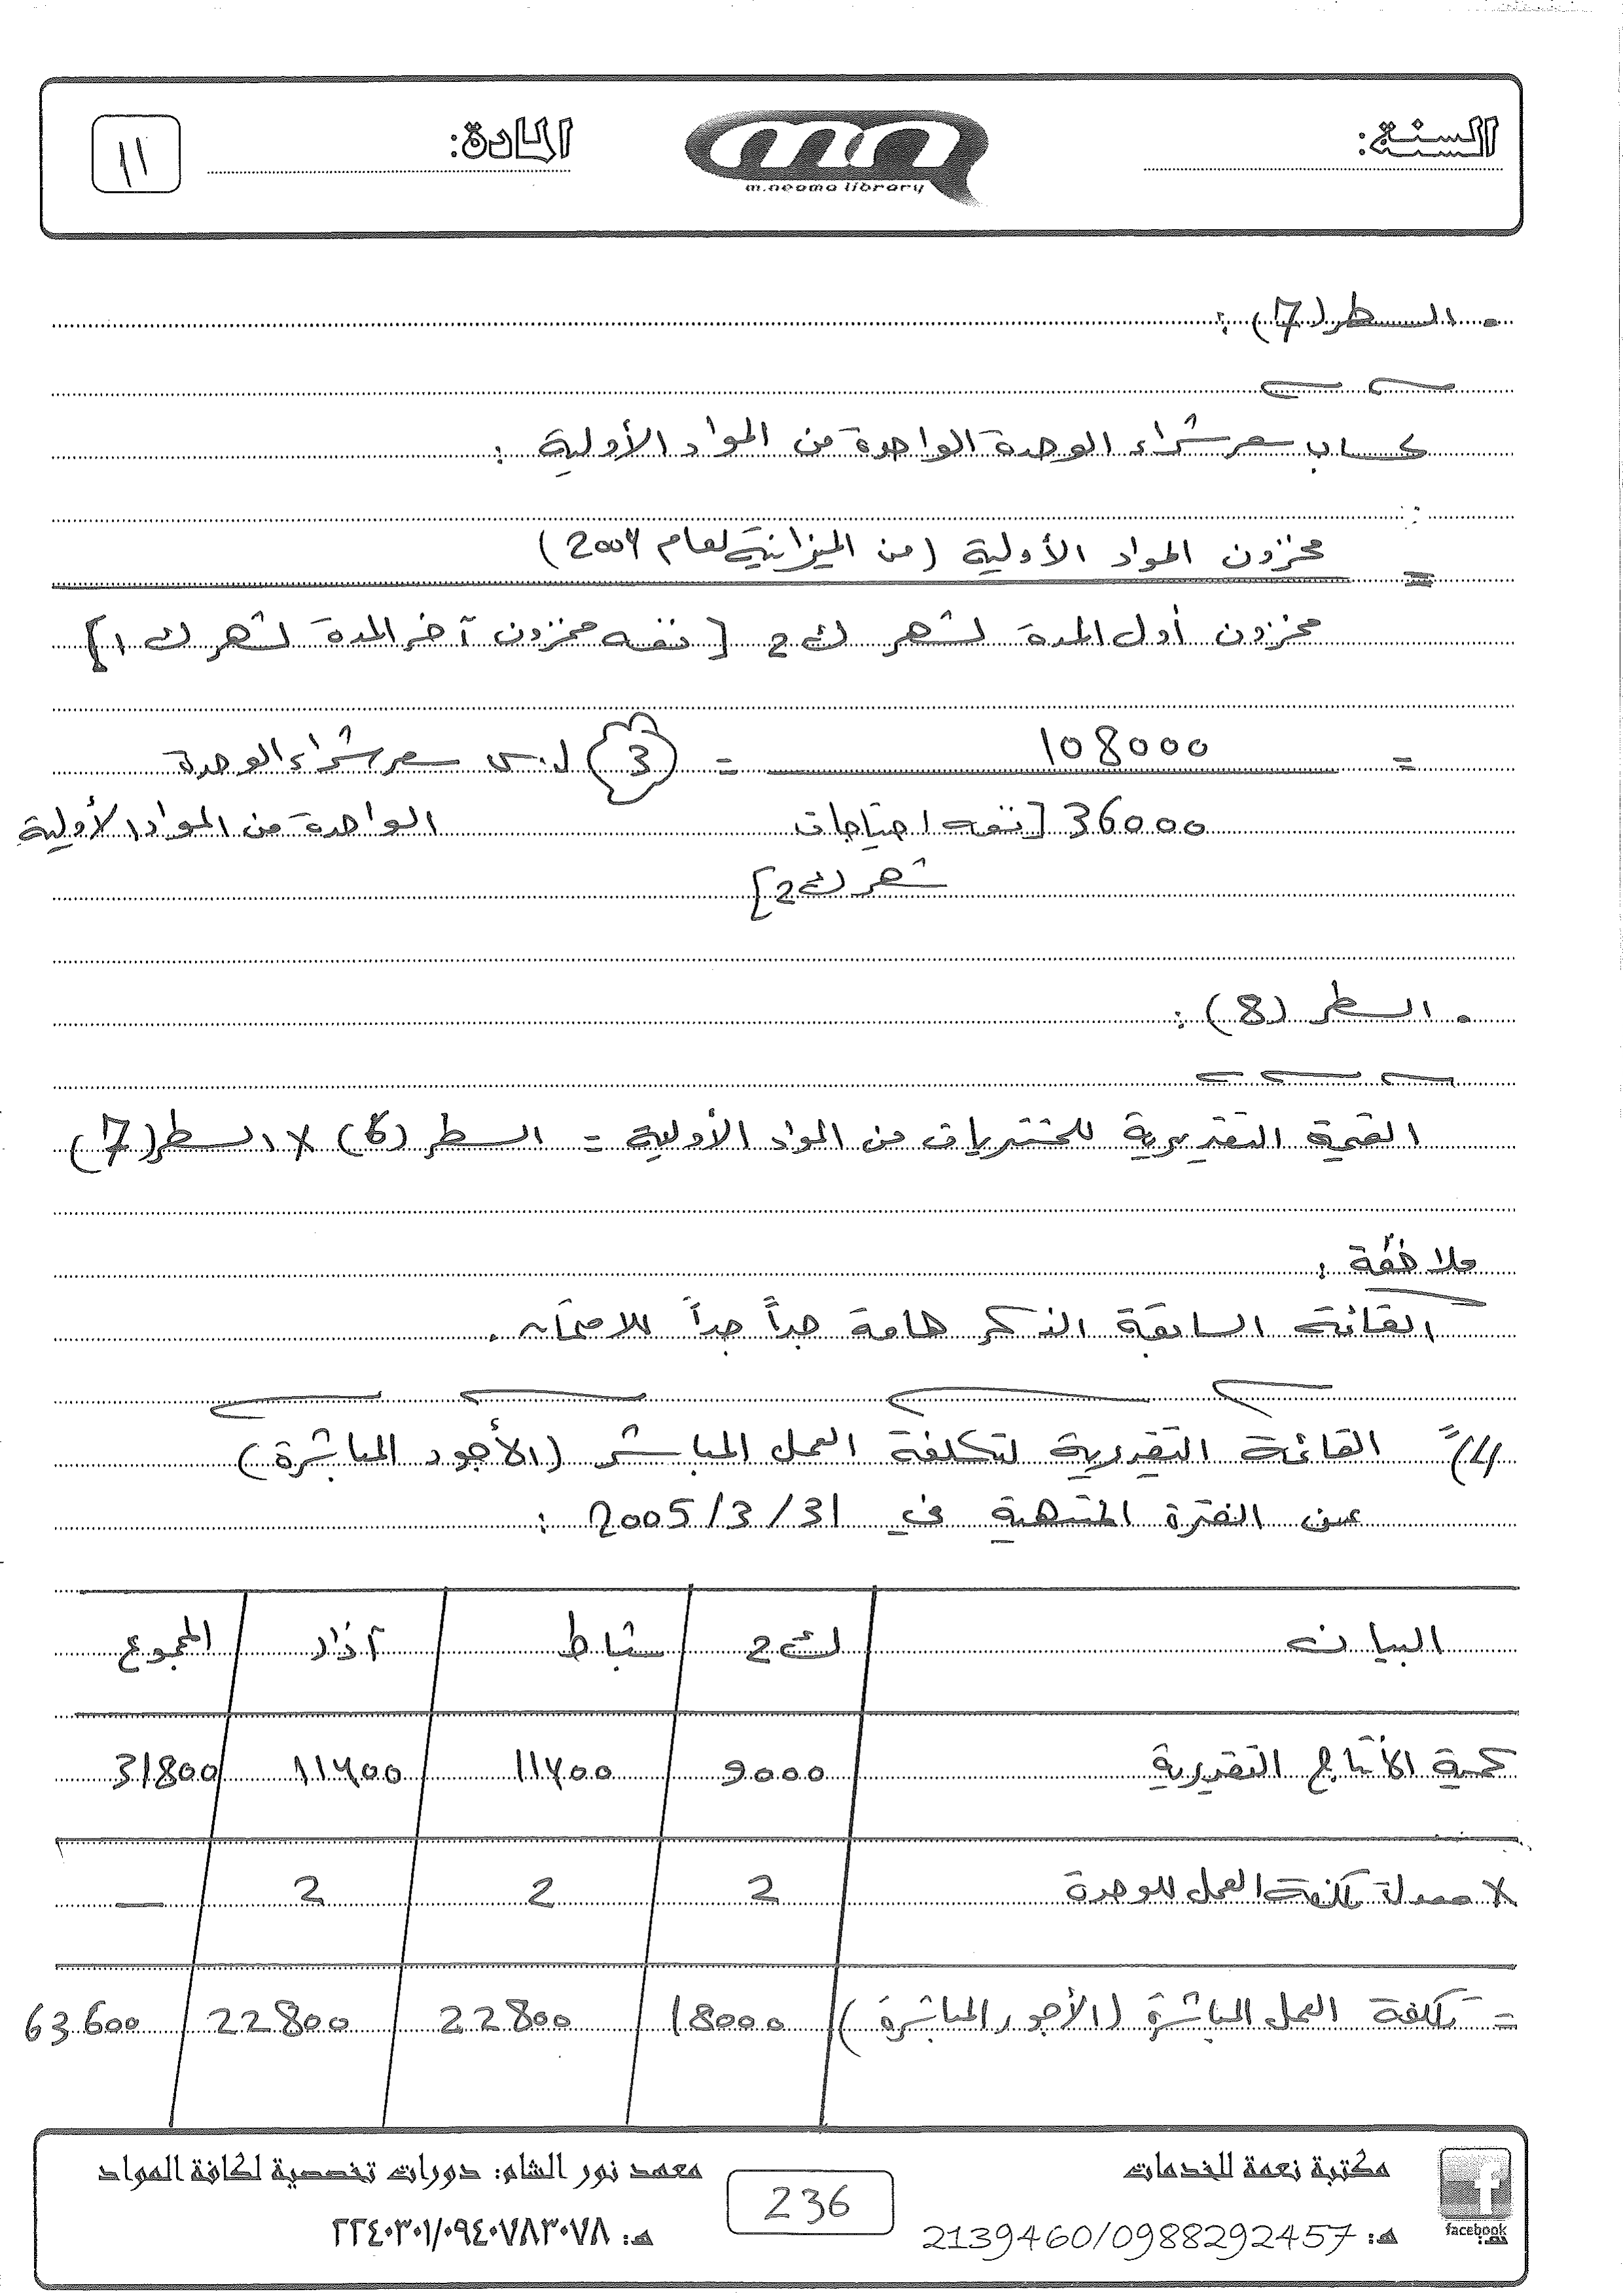 السنة:
m.neama library
المادة:
11
• السطر (7):
حساب سعر شراء الوحدة الواحدة من المواد الأولية:
= مخزون المواد الأولية (من الميزانية لعام 2004)
مخزون أول المدة لشهر ك2 [نفسه مخزون آخر المدة لشهر ك1]
= 108000 = 3 ل.س سعر شراء الوحدة
36000 [نفسه احتياجات الواحدة من المواد الأولية
شهر ك2]
• السطر (8):
القيمة التقديرية للمشتريات من المواد الأولية = السطر (6) × السطر (7)
ملاحظة:
القائمة السابقة الذكر هامة جداً جداً للامتحان.
4) القائمة التقديرية لتكلفة العمل المباشر (الأجور المباشرة)
عن الفترة المنتهية في 31/3/2005:
البيان ك2 شباط آذار المجموع
كمية الإنتاج التقديرية 9000 11400 11400 31800
× معدل تكلفة العمل للوحدة 2 2 2 —
= تكلفة العمل المباشرة (الأجور المباشرة) 18000 22800 22800 63600
facebook
مكتبة نعمة للخدمات
هـ: 2139460/0988292457
236
معهد نور الشام: دورات تخصصية لكافة المواد
هـ: ٢٢٤٠٣٠١/٠٩٤٠٧٨٣٠٧٨